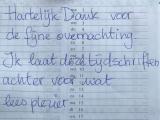 Hartelijk Dank voor
de fijne overnachting.
Ik laat deze tijdschriften
achter voor wat
lees plezier